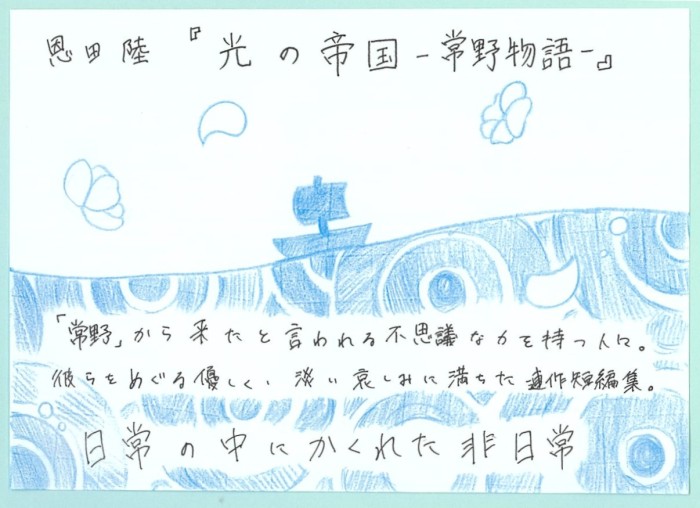 恩田陸『光の帝国-常野物語-』
「常野」から来たと言われる不思議な力を持つ人々。
彼らをめぐる優しく、淡い哀しみに満ちた連作短編集。
日常の中にかくれた非日常